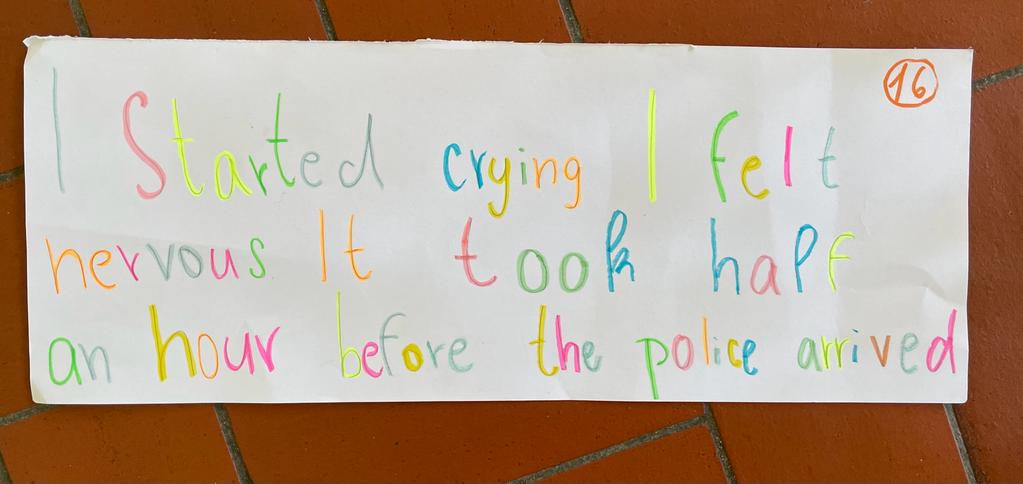 16
I Started crying I felt
nervous It took half
an hour before the police arrived